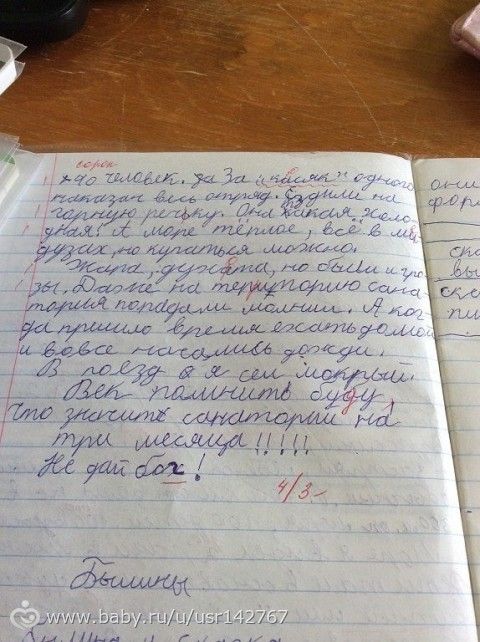 сорок
40 человек. За За "касяк" одного
наказан весь отряд. Ездили на
горную речьку. Она такая холо-
дная! А море тёплое, всё в ме-
дузах, но купаться можно.
Жара, духота, но были и гро-
зы. Даже на территорию сана-
тория попадали молнии. А ког-
да пришло время ехать домой
и вовсе начались дожди.
В поезд я сел мокрый.
Век помнить буду,
что значить санаторий на
три месяца!!!!!!
Не дай бох!
4/3-
Былины.
они
фор
ска
вы
ске
пи
www.baby.ru/u/usr142767